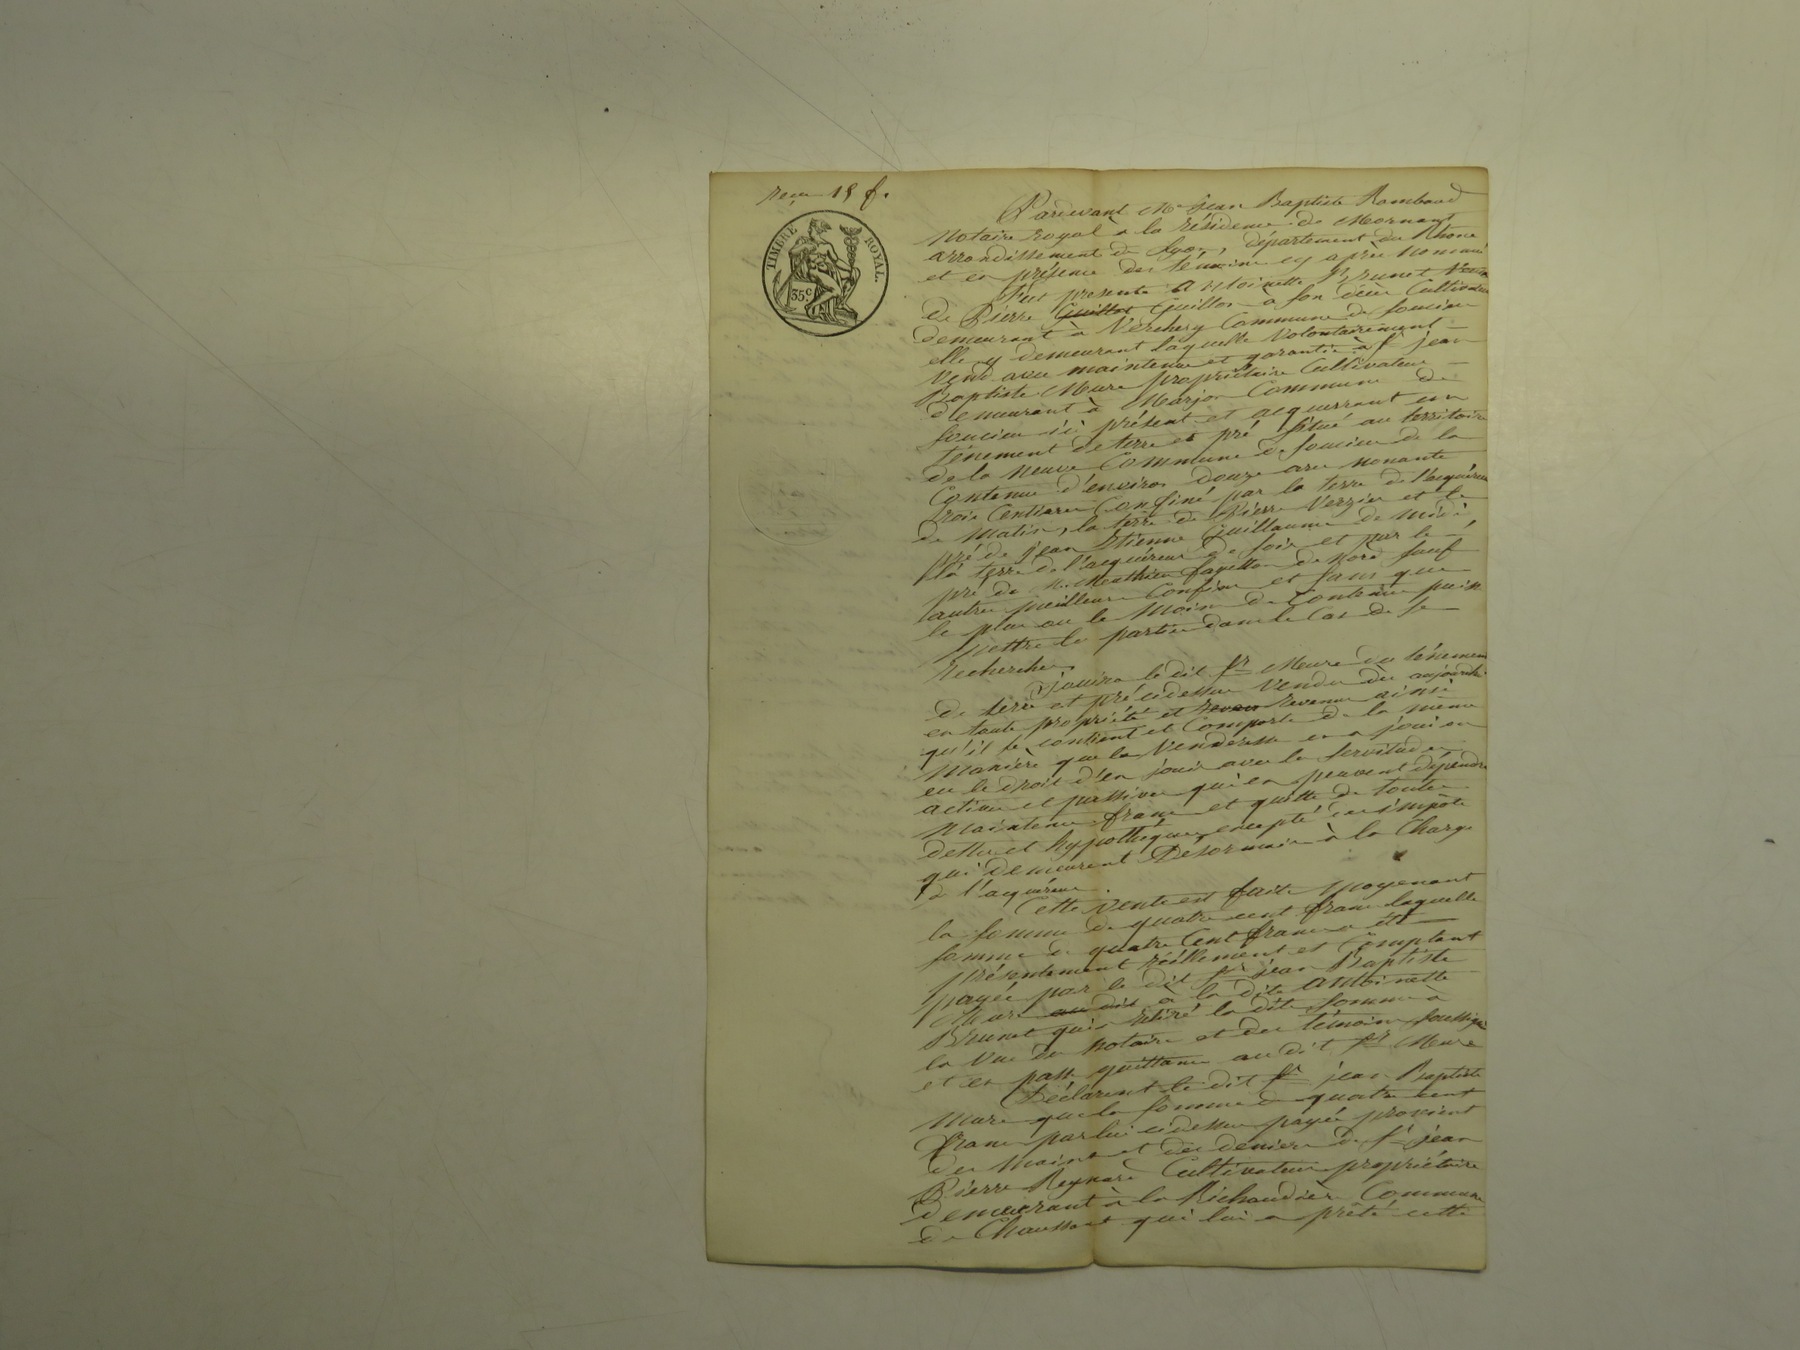 reçu 15 f.
TIMBRE ROYAL.
35 c.
Pardevant Me Jean Baptiste Rambaud
Notaire royal à la résidence de Mornant
arrondissement de Lyon, département du Rhone
et en présence des témoins cy après nommés
Est presente Antoinette Brunet Veuve
de Pierre Guillot Guillon a son décès Cultivateur
demeurant à Verchery Commune de soucieu
elle y demeurant laquelle Volontairement
Vend avec maintenue et garantie à sr jean
Baptiste Mure propriétaire Cultivateur
demeurant à Marjon Commune de
soucieu ici présent et acquerrant un
ténement de terre et pré situé au territoire
de la neuve Commune de soucieu de la
Contenue d'environ douze ares nonante
trois Centiares Confiné par la terre de l'acquéreur
de matin, la terre de Pierre Verzier et le
pré de jean Etienne Guillaume de midi,
la terre de l'acquéreur de soir et par le
pré de Mathieu de nord sauf
autres meilleurs Confins et sans que
le plus ou le moins de Contenue puisse
mettre les parties dans le Cas de se
rechercher.
Jouira le dit sr Mure du ténement
de terre et pré cidessus Vendu dès aujourdhui
en toute propriété et revenu ainsi
qu'il se contient et Comporte de la même
manière que la Venderesse en a joui ou
eu le droit d'en jouir avec les servitudes
actives et passives qui en peuvent dépendre
maintenu franc et quitte de toutes
dettes et hypothèques, excepté des impôts
qui demeurent Désormais à la Charge
de l'acquéreur.
Cette Vente est faite moyenant
la somme de quatre cent francs laquelle
somme de quatre Cent francs a été
présentement réellement et Comptant
payée par le dit sr jean Baptiste
Mure au dit à la dite Antoinette
Brunet qui a retiré la dite somme à
la Vue du notaire et des témoins soussignés
et en passe quittance au dit sr Mure
Déclarent le dit sr jean Baptiste
Mure que la somme de quatre cent
francs par lui cidessus payée provient
des mains et des deniers de sr jean
Pierre Reynard Cultivateur propriétaire
demeurant à la Richaudière Commune
de Chaussant qui lui a prêté cette